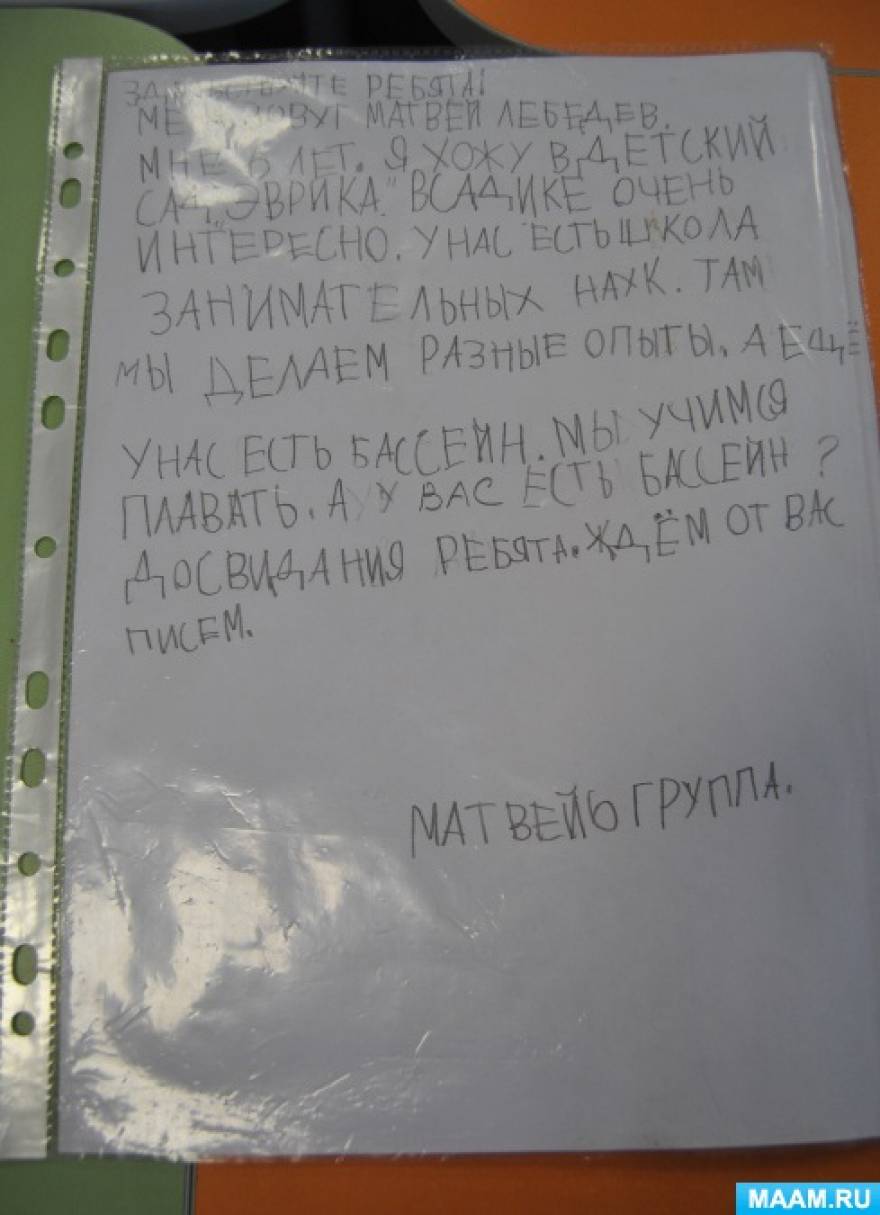 ЗДРАВСТВУЙТЕ РЕБЯТА!
МЕНЯ ЗОВУТ МАТВЕЙ ЛЕБЕДЕВ.
МНЕ 6 ЛЕТ. Я ХОЖУ В ДЕТСКИЙ
САД „ЭВРИКА." В САДИКЕ ОЧЕНЬ
ИНТЕРЕСНО. У НАС ЕСТЬ ШКОЛА
ЗАНИМАТЕЛЬНЫХ НАУК. ТАМ
МЫ ДЕЛАЕМ РАЗНЫЕ ОПЫТЫ. А ЕЩЁ
У НАС ЕСТЬ БАССЕЙН. МЫ УЧИМСЯ
ПЛАВАТЬ. А У ВАС ЕСТЬ БАССЕЙН ?
ДОСВИДАНИЯ РЕБЯТА. ЖДЁМ ОТ ВАС
ПИСЕМ.
МАТВЕЙ 6 ГРУППА.
MAAM.RU